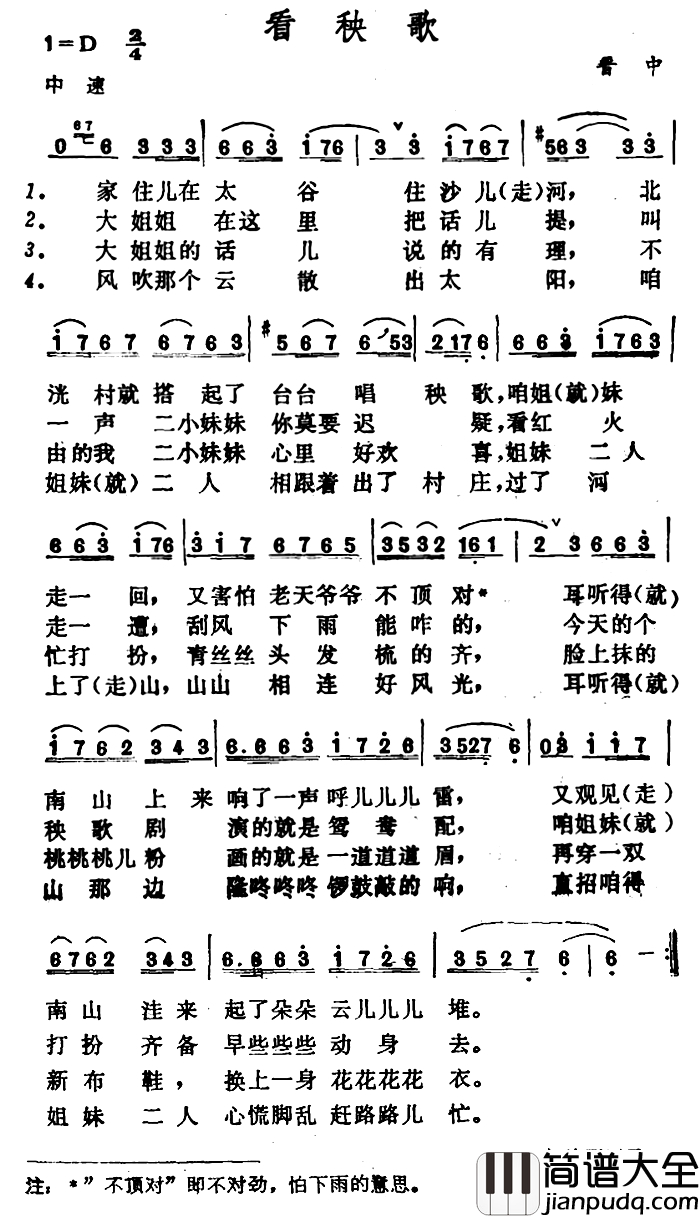 看秧歌
1=D 2/4
晋中
中速
0 67 6 3 3 3 | 6 6 3 1 7 6 | 3 3 3 1 7 6 7 | #5 6 3 3 3 |
1. 家住儿在太谷住沙儿(走)河,北
2. 大姐姐在这里把话儿提,叫
3. 大姐姐的话儿说的有理,不
4. 风吹那个云散出太阳,咱
1 7 6 7 6 7 6 3 | #5 6 7 6 53 | 2 17 6 | 6 6 3 1 7 6 3 |
洸村就搭起了台台唱秧歌,咱姐(就)妹
一声二小妹妹你莫要迟疑,看红火
由的我二小妹妹心里好欢喜,姐妹二人
姐妹(就)二人相跟着出了村庄,过了河
6 6 3 1 7 6 | 3 1 7 6 7 6 5 | 3 5 3 2 1 6 1 | 2 3 6 6 3 |
走一回,又害怕老天爷爷不顶对*耳听得(就)
走一遭,刮风下雨能咋的,今天的个
忙打扮,青丝丝头发梳的齐,脸上抹的
上了(走)山,山山相连好风光,耳听得(就)
1 7 6 2 3 4 3 | 6. 6 6 3 1 7 2 6 | 3 5 2 7 6 | 0 3 1 1 7 |
南山上来响了一声呼儿儿儿雷,又观见(走)
秧歌剧演的就是鸳鸯配,咱姐妹(就)
桃桃桃儿粉画的就是一道道道眉,再穿一双
山那边隆咚咚咚锣鼓敲的响,直招咱得
6 7 6 2 3 4 3 | 6. 6 6 3 1 7 2 6 | 3 5 2 7 6 | 6 — :|
南山洼来起了朵朵云儿儿儿堆。
打扮齐备早些些些动身去。
新布鞋,换上一身花花花花衣。
姐妹二人心慌脚乱赶路路儿忙。
注:*"不顶对"即不对劲,怕下雨的意思。
简谱大全
jianpudq.com